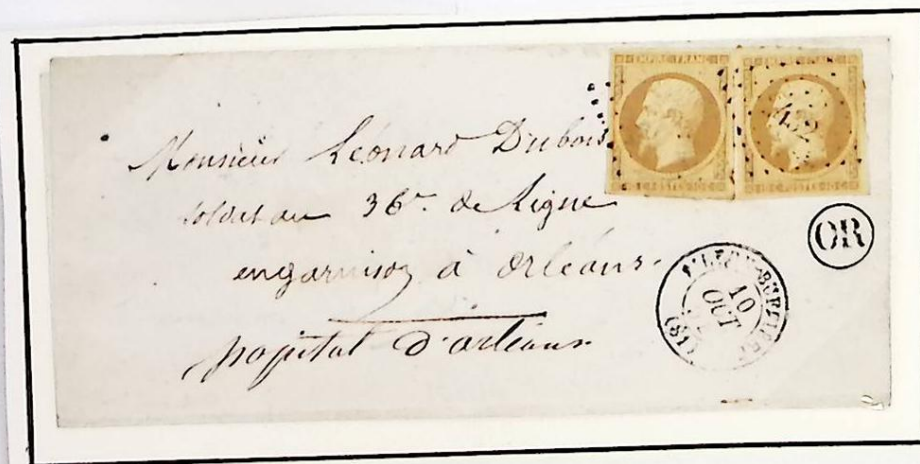 EMPIRE FRANC EMPIRE FRANC
Monsieur Léonard Dubois
soldat au 36e de Ligne
engarnison à Orléans.
hopital d'orléans
OR
10
OCT
(18)